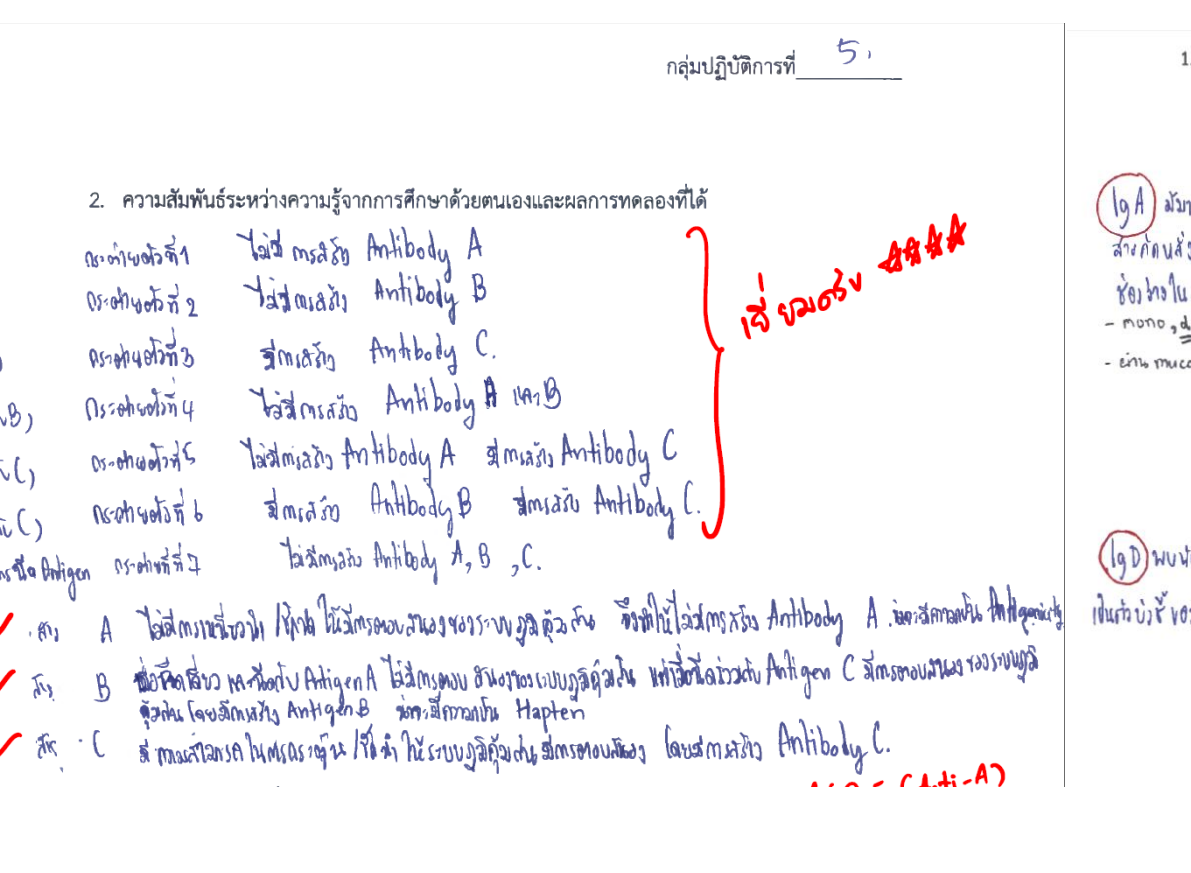 กลุ่มปฏิบัติการที่ 5.
1.
2. ความสัมพันธ์ระหว่างความรู้จากการศึกษาด้วยตนเองและผลการทดลองที่ได้
กระต่ายตัวที่ 1 ไม่มีการสร้าง Antibody A
กระต่ายตัวที่ 2 ไม่มีการสร้าง Antibody B
กระต่ายตัวที่ 3 มีการสร้าง Antibody C.
B) กระต่ายตัวที่ 4 ไม่มีการสร้าง Antibody A และ B
C) กระต่ายตัวที่ 5 ไม่มีการสร้าง Antibody A มีการสร้าง Antibody C
C) กระต่ายตัวที่ 6 มีการสร้าง Antibody B มีการสร้าง Antibody C.
Antigen กระต่ายที่ 7 ไม่มีการสร้าง Antibody A, B , C.
เยี่ยมครับ
สาร A ไม่มีการเหนี่ยวนำ /ชักนำ ให้มีการตอบสนองของระบบภูมิคุ้มกัน จึงทำให้ไม่มีการสร้าง Antibody A
สาร B เมื่อฉีดเดี่ยว และฉีดกับ Antigen A ไม่มีการตอบสนองของระบบภูมิคุ้มกัน แต่เมื่อฉีดร่วมกับ Antigen C มีการตอบสนองของระบบภูมิ
คุ้มกัน โดยมีการสร้าง Antigen B Hapten
สาร C มีความสามารถในการกระตุ้น /ชักนำ ให้ระบบภูมิคุ้มกัน มีการตอบสนอง โดยมีการสร้าง Antibody C.
(Anti-A)
IgA
ช่องว่างใน
- mono,
- ผ่าน
IgD พบ